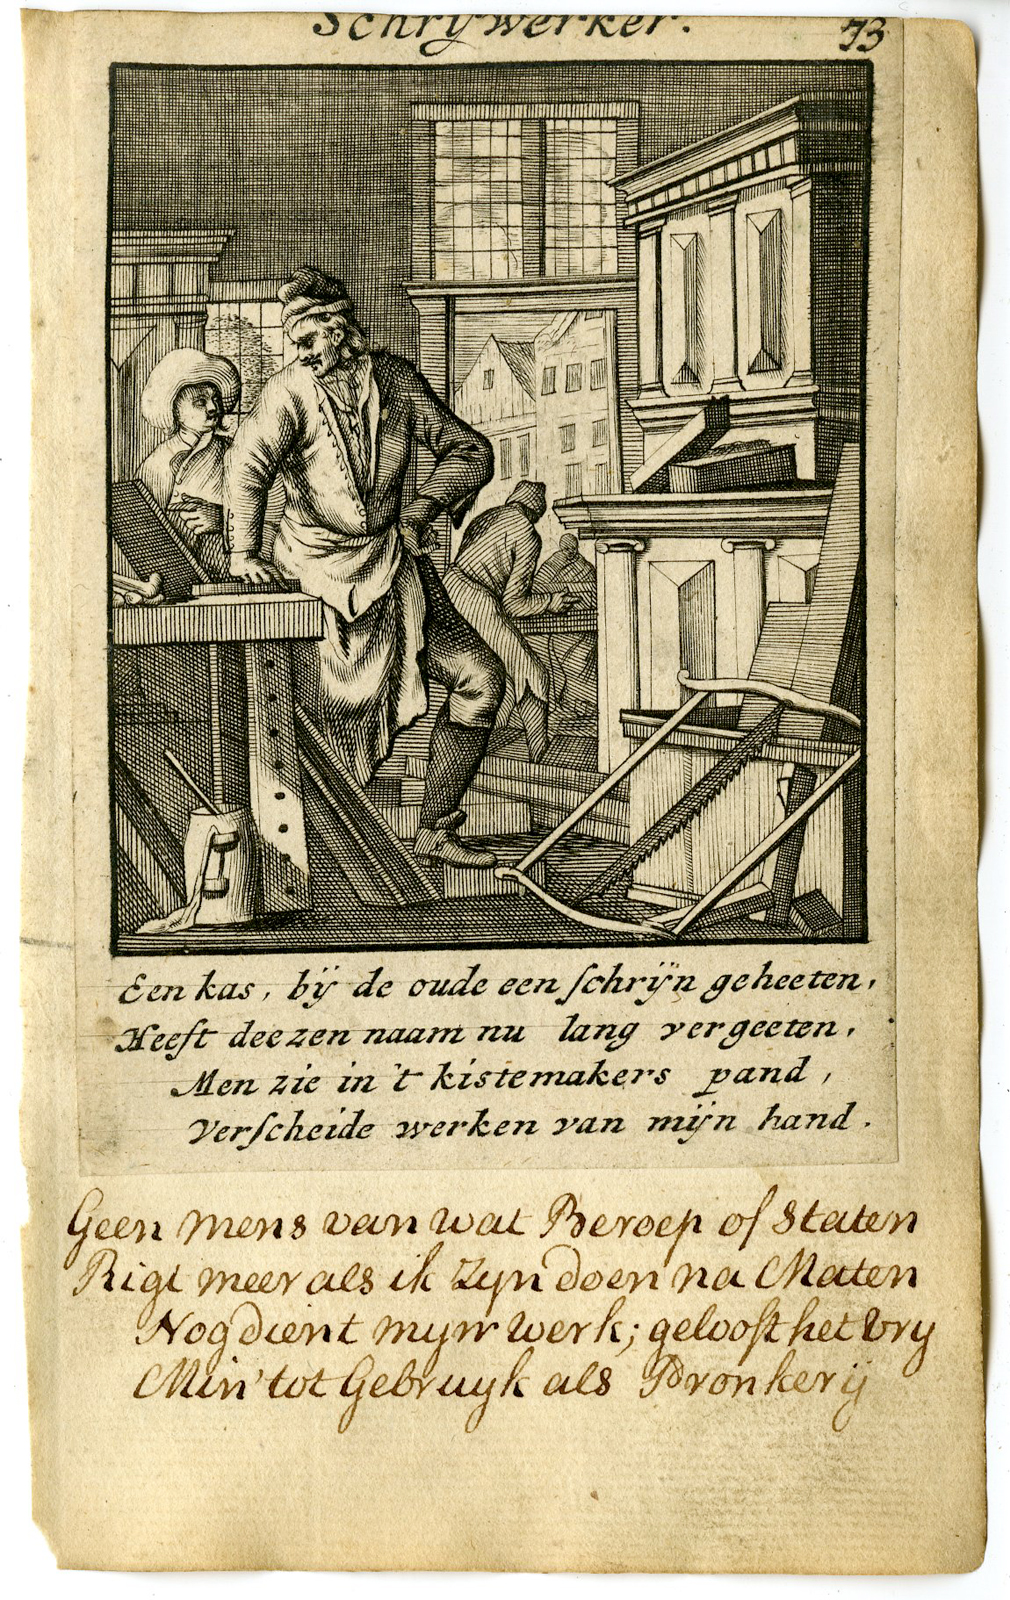 Schrywerker. 73
Een kas, bij de oude een ſchrijn geheeten,
Heeft deezen naam nu lang vergeeten,
Men zie in 't kistemakers pand,
Verſcheide werken van mijn hand.
Geen mens van wat Beroep of Staten
Rigt meer als ik Zyn doen na Maten
Nog dient myn Werk; gelooft het Vry
Min' tot Gebruyk als Pronkerij